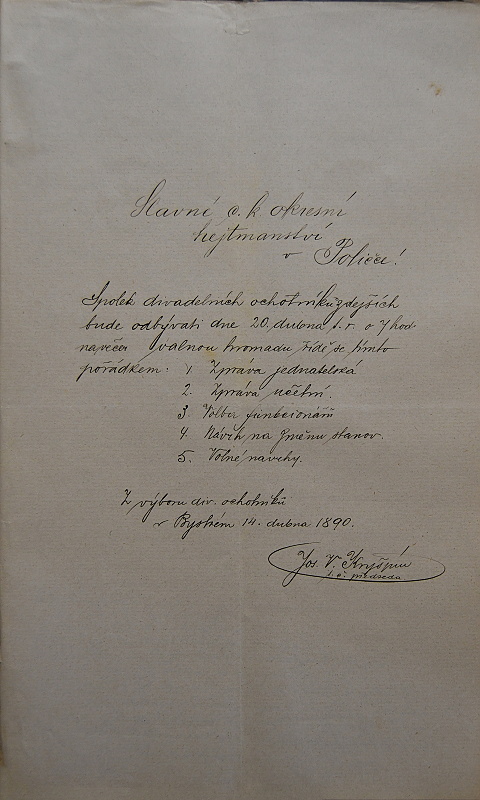 Slavné c. k. okresní
hejtmanství
v Poličce!
Spolek divadelních ochotníků zdejších
bude odbývati dne 20. dubna t. r. o 7 hod.
na večer valnou hromadu řídě se tímto
pořádkem: 1. Zpráva jednatelská
2. Zpráva účetní.
3. Volba funkcionářů
4. Návrh na změnu stanov.
5. Volné návrhy.
Z výboru div. ochotníků
v Bystrém 14. dubna 1890.
Jos. V.
t. č. předseda